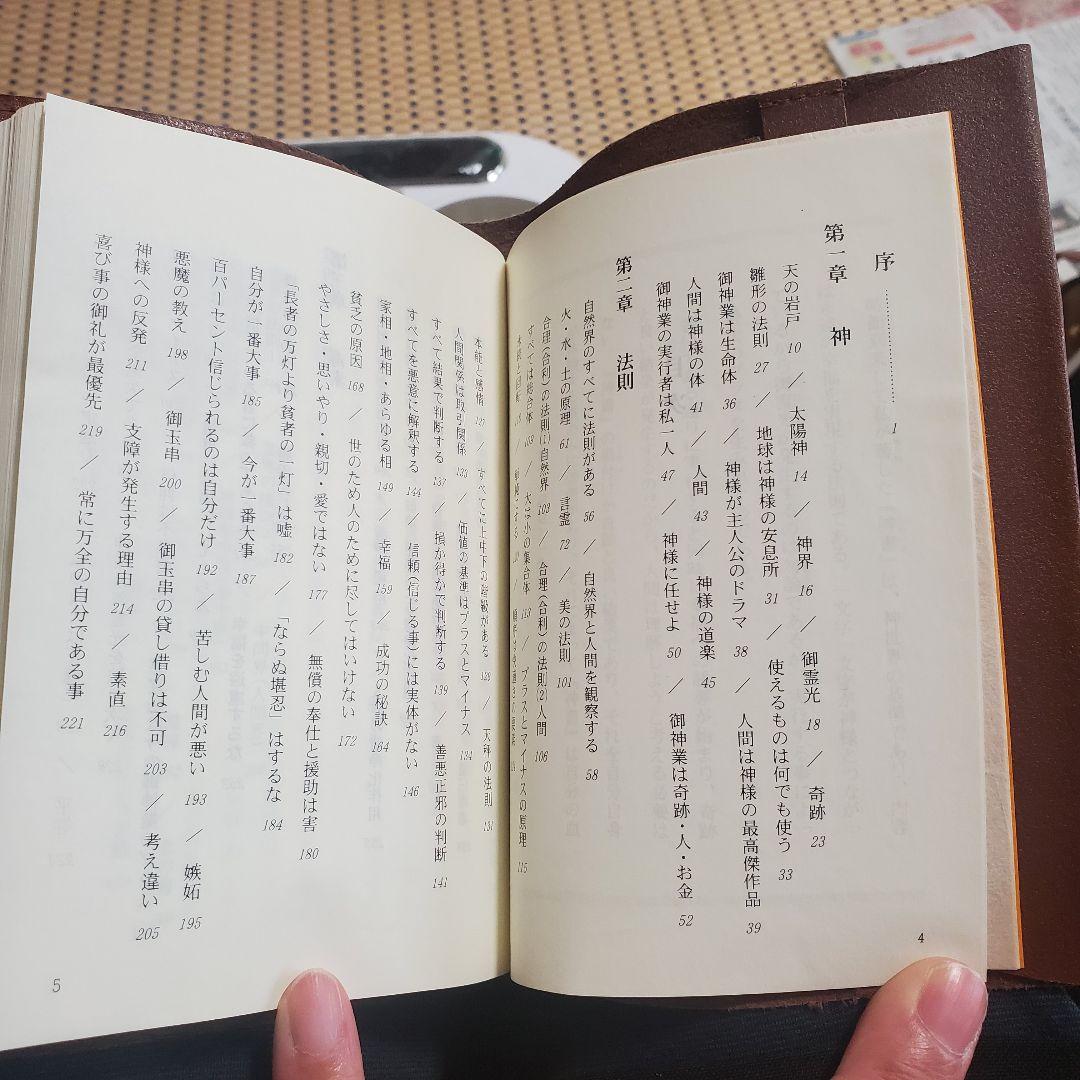 序 1
第一章 神
天の岩戸 10 ／ 太陽神 14 ／ 神界 16 ／ 御霊光 18 ／ 奇跡 23
雛形の法則 27 ／ 地球は神様の安息所 31 ／ 使えるものは何でも使う 33
御神業は生命体 36 ／ 神様が主人公のドラマ 38 ／ 人間は神様の最高傑作品 39
人間は神様の体 41 ／ 人間 43 ／ 神様の道楽 45
御神業の実行者は私一人 47 ／ 神様に任せよ 50 ／ 御神業は奇跡・人・お金 52
第二章 法則
自然界のすべてに法則がある 56 ／ 自然界と人間を観察する 58
火・水・土の原理 61 ／ 言霊 72 ／ 美の法則 101
合理(合利)の法則(1)自然界 102 ／ 合理(合利)の法則(2)人間 106
すべては総合体 103 ／ 大中小の集合体 113 ／ プラスとマイナスの原理 115
4
本能と感情 127 ／ すべてに上中下の階級がある 128 ／ 天秤の法則 131
人間関係は取引関係 133 ／ 価値の基準はプラスとマイナス 134
すべて結果で判断する 137 ／ 損か得かで判断する 139 ／ 善悪正邪の判断 141
すべてを悪意に解釈する 144 ／ 信頼(信じる事)には実体がない 146
家相・地相・あらゆる相 149 ／ 幸福 159 ／ 成功の秘訣 164
貧乏の原因 168 ／ 世のため人のために尽してはいけない 172
やさしさ・思いやり・親切・愛ではない 177 ／ 無償の奉仕と援助は害 180
「長者の万灯より貧者の一灯」は嘘 182 ／ 「ならぬ堪忍」はするな 184
自分が一番大事 185 ／ 今が一番大事 187
百パーセント信じられるのは自分だけ 192 ／ 苦しむ人間が悪い 193 ／ 嫉妬 195
悪魔の教え 198 ／ 御玉串 200 ／ 御玉串の貸し借りは不可 203 ／ 考え違い 205
神様への反発 211 ／ 支障が発生する理由 214 ／ 素直 216
喜び事の御礼が最優先 219 ／ 常に万全の自分である事 221
5